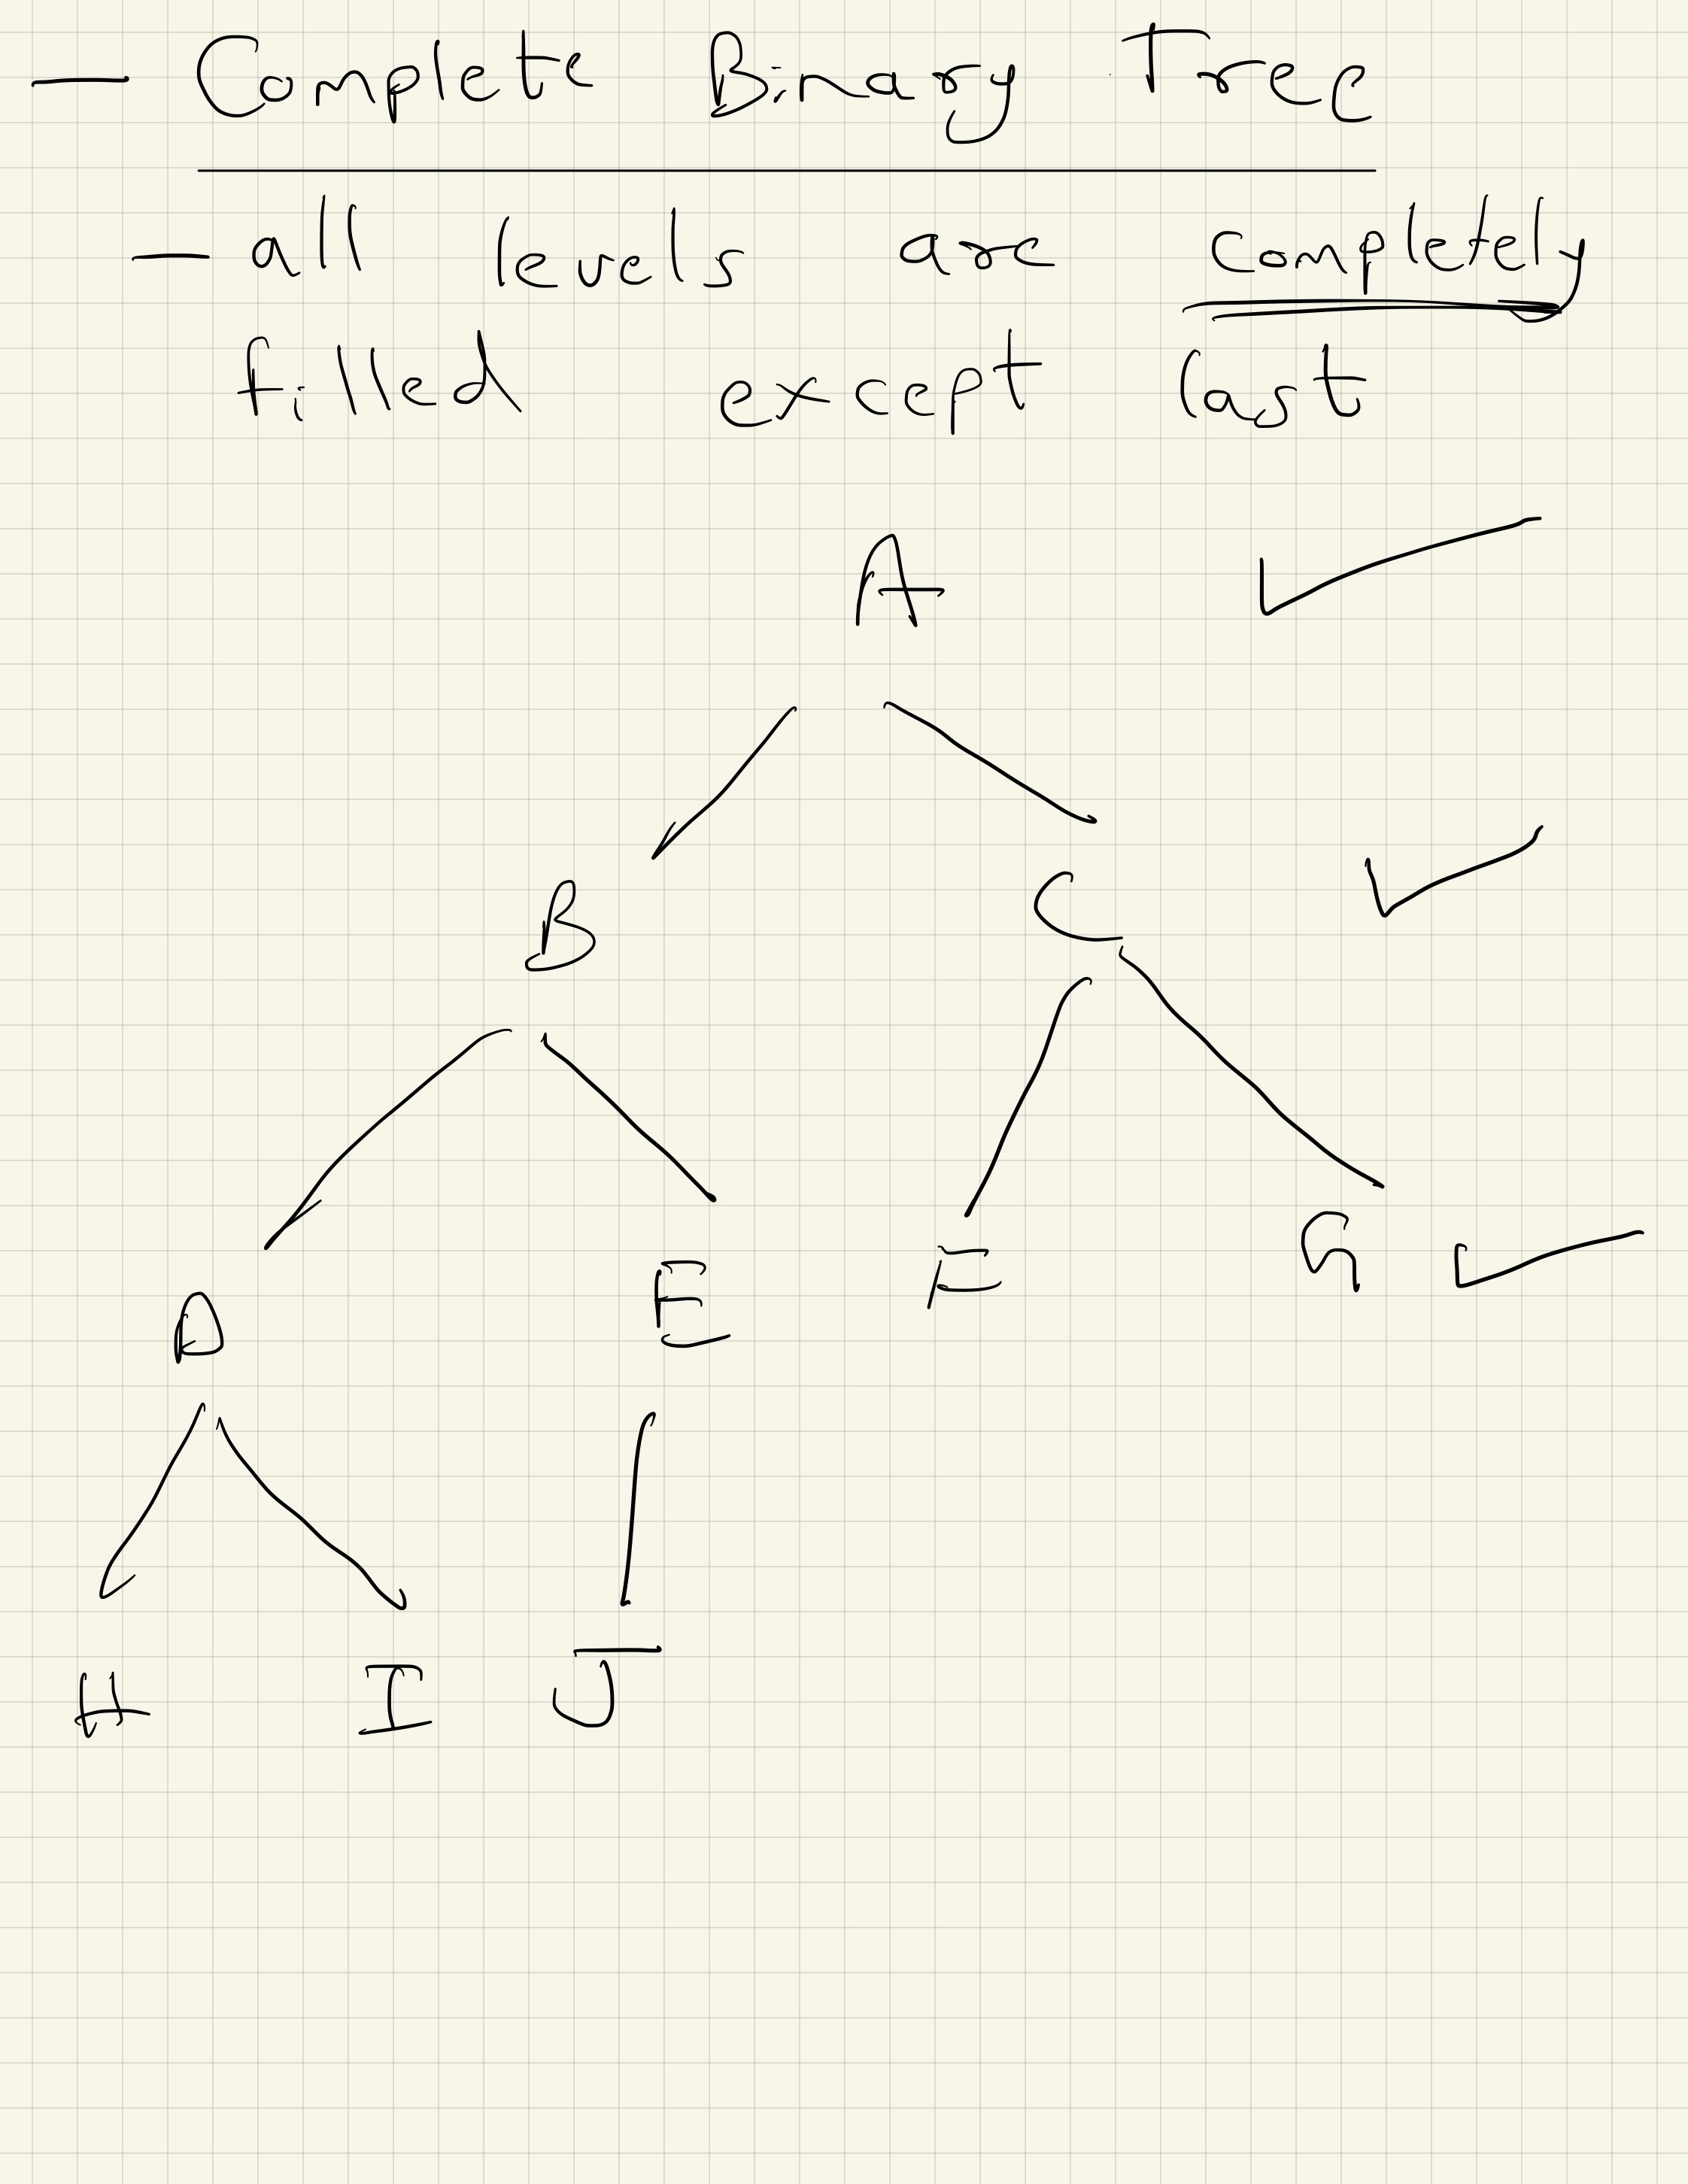 — Complete Binary Tree
— all levels are completely
filled except last
A
B C
D E F G
H I J